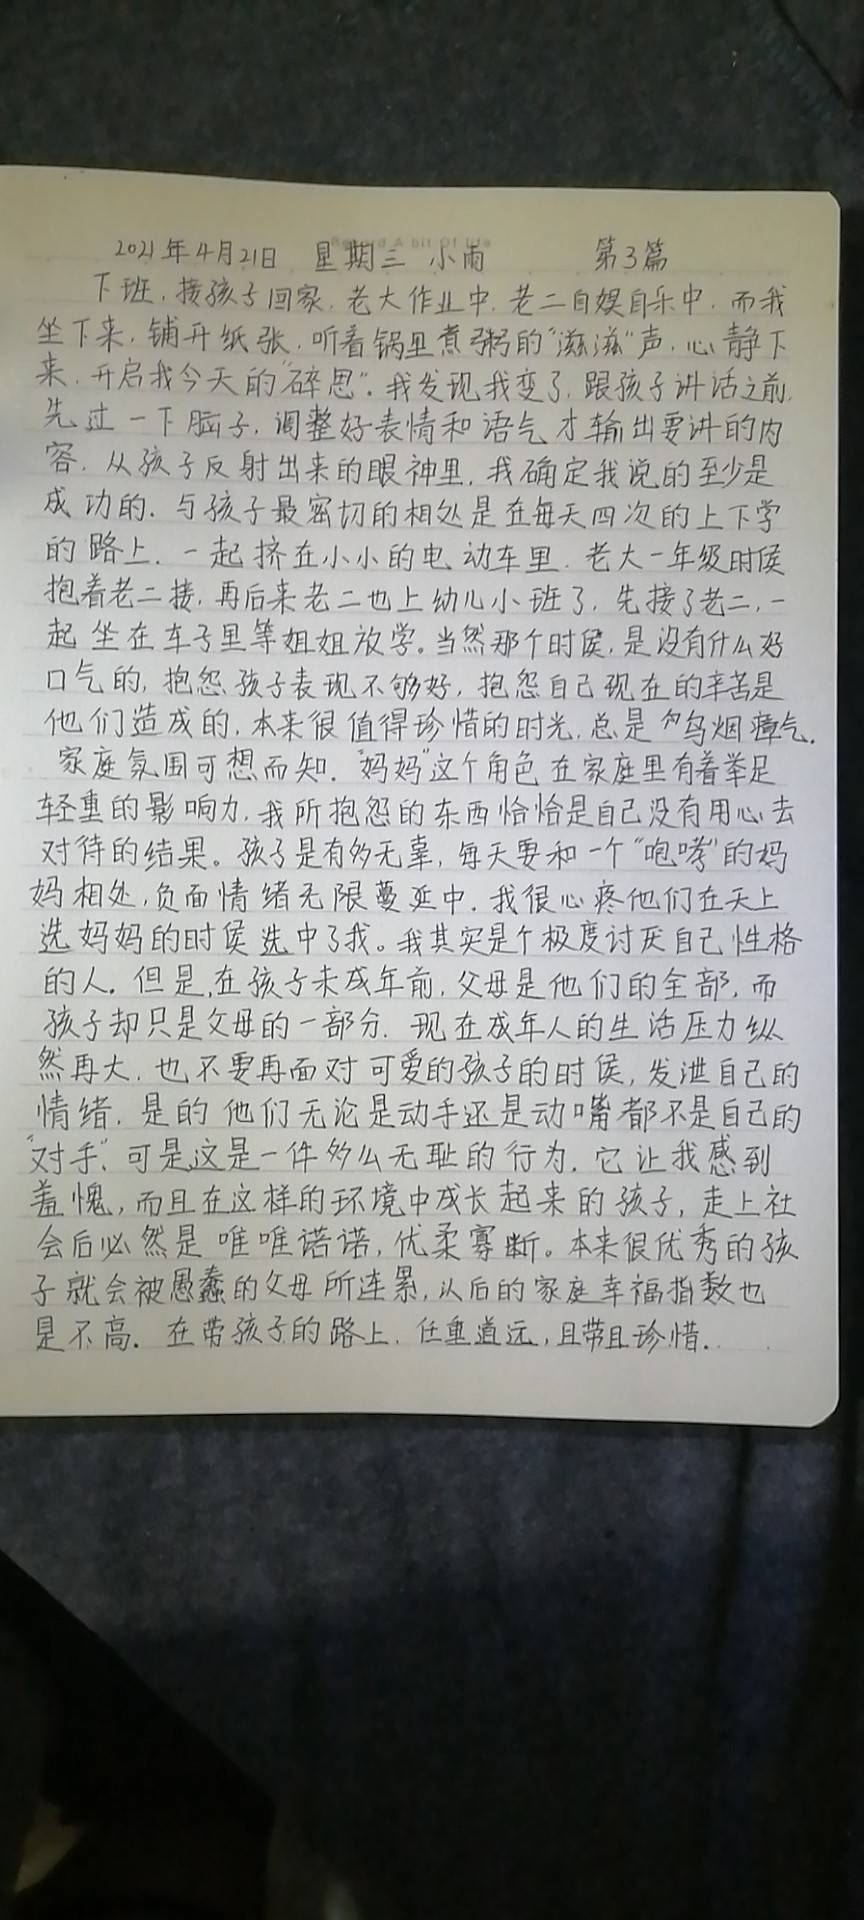 2021年4月21日 星期三 小雨 第3篇
下班，接孩子回家，老大作业中，老二自娱自乐中，而我
坐下来，铺开纸张，听着锅里煮粥的“滋滋”声，心静下
来，开启我今天的“碎思”。我发现我变了，跟孩子讲话之前，
先过一下脑子，调整好表情和语气才输出要讲的内
容，从孩子反射出来的眼神里，我确定我说的至少是
成功的．与孩子最密切的相处是在每天四次的上下学
的路上．一起挤在小小的电动车里．老大一年级时候
抱着老二接，再后来老二也上幼儿小班了，先接了老二，一
起坐在车子里等姐姐放学。当然那个时候，是没有什么好
口气的，抱怨孩子表现不够好，抱怨自己现在的辛苦是
他们造成的，本来很值得珍惜的时光，总是乌烟瘴气．
家庭氛围可想而知．“妈妈”这个角色在家庭里有着举足
轻重的影响力，我所抱怨的东西恰恰是自己没有用心去
对待的结果。孩子是有多无辜，每天要和一个“咆哮”的妈
妈相处，负面情绪无限蔓延中．我很心疼他们在天上
选妈妈的时候选中了我。我其实是个极度讨厌自己性格
的人．但是，在孩子未成年前，父母是他们的全部，而
孩子却只是父母的一部分．现在成年人的生活压力纵
然再大，也不要再面对可爱的孩子的时候，发泄自己的
情绪．是的他们无论是动手还是动嘴都不是自己的
“对手”，可是这是一件多么无耻的行为．它让我感到
羞愧，而且在这样的环境中成长起来的孩子，走上社
会后必然是唯唯诺诺，优柔寡断。本来很优秀的孩
子就会被愚蠢的父母所连累，以后的家庭幸福指数也
是不高．在带孩子的路上，任重道远，且带且珍惜．